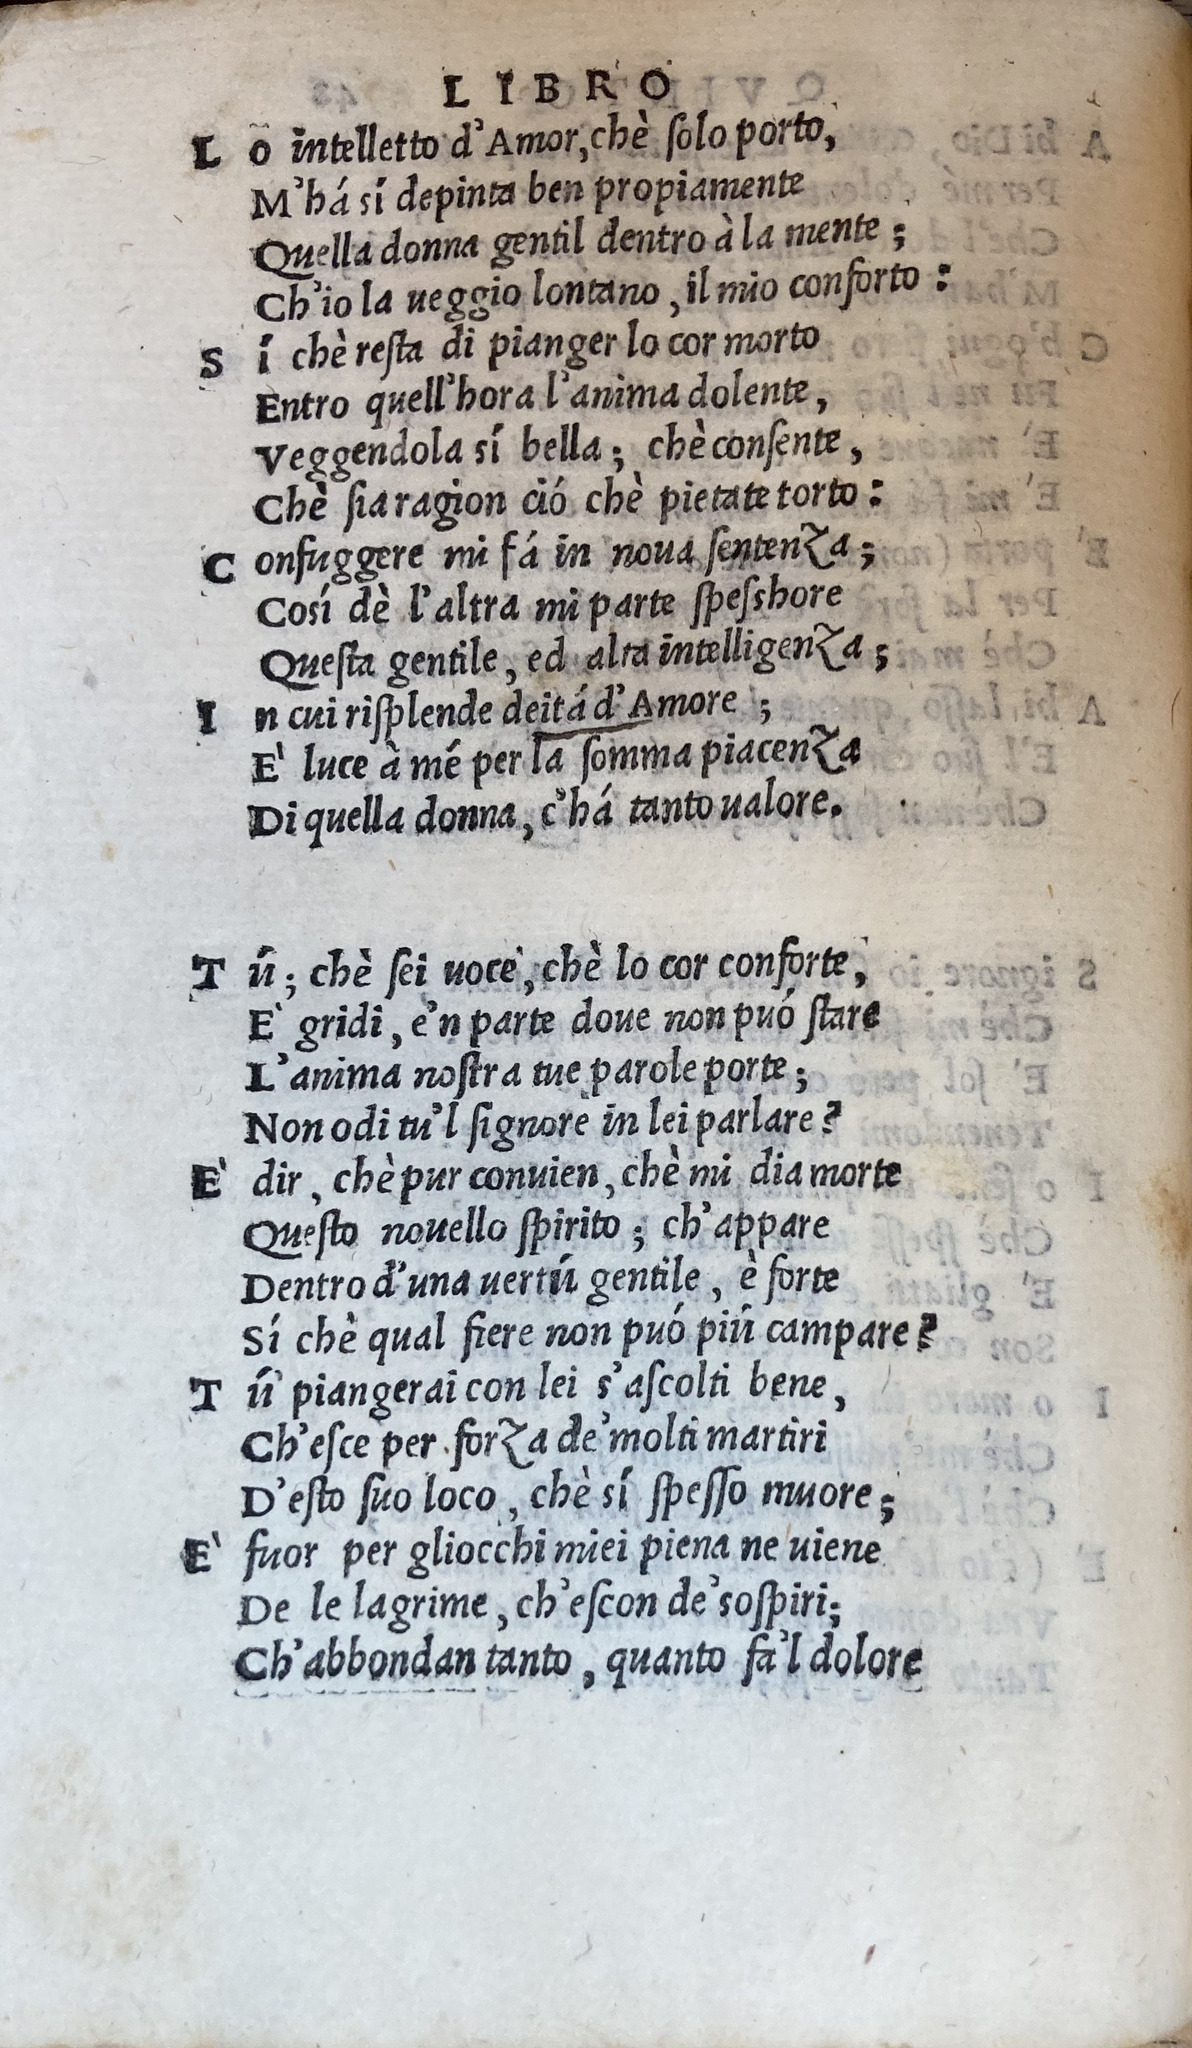 LIBRO
Lo intelletto d'Amor, chè ſolo porto,
M'há sí depinta ben propiamente
Quella donna gentil dentro à la mente;
Ch'io la ueggio lontano, il mio conforto:
Sí chè reſta di pianger lo cor morto
Entro quell'hora l'anima dolente,
Veggendola sí bella; chè conſente,
Chè ſia ragion ció chè pietate torto:
Confuggere mi fá in noua ſentenza;
Cosí dè l'altra mi parte ſpeſshore
Queſta gentile, ed alta intelligenza;
In cui riſplende deitá d'Amore;
E' luce à mé per la ſomma piacenza
Di quella donna, c'há tanto ualore.
Tú; chè ſei uoce, chè lo cor conforte,
E' gridi, e'n parte doue non puó ſtare
L'anima noſtra tue parole porte;
Non odi tu'l ſignore in lei parlare?
E' dir, chè pur conuien, chè mi dia morte
Queſto nouello ſpirito; ch'appare
Dentro d'una uertú gentile, è forte
Sí chè qual fiere non puó piú campare?
Tú piangerai con lei s'aſcolti bene,
Ch'eſce per forza de'molti martiri
D'eſto ſuo loco, chè sí ſpeſſo muore;
E' fuor per gliocchi miei piena ne uiene
De le lagrime, ch'eſcon de'soſpiri;
Ch'abbondan tanto, quanto fa'l dolore